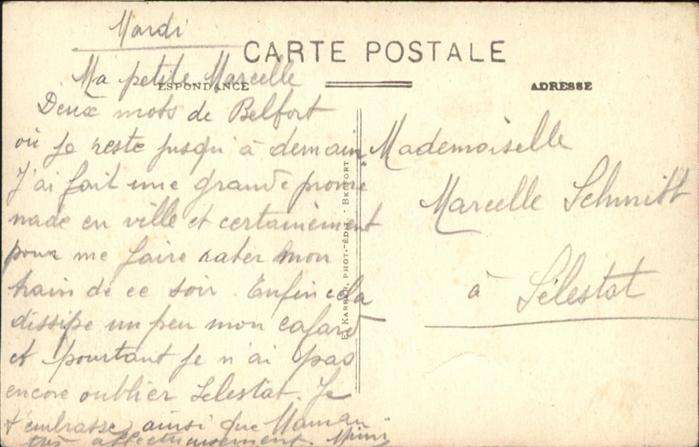 Mardi
CARTE POSTALE
ESPONDANCE
ADRESSE
Ma petite Marcelle
Deux mots de Belfort
où je reste jusqu'à demain
J'ai fait une grande prome
nade en ville et certainement
pour me faire rater mon
train de ce soir. Enfin cela
dissipe un peu mon cafard
et pourtant je n'ai pas
encore oublier Sélestat. Je
t'embrasse ainsi que Maman
très affectueusement. Mimi
PHOT-ÉDIT - BELFORT
Mademoiselle
Marcelle Schmitt
à Sélestat